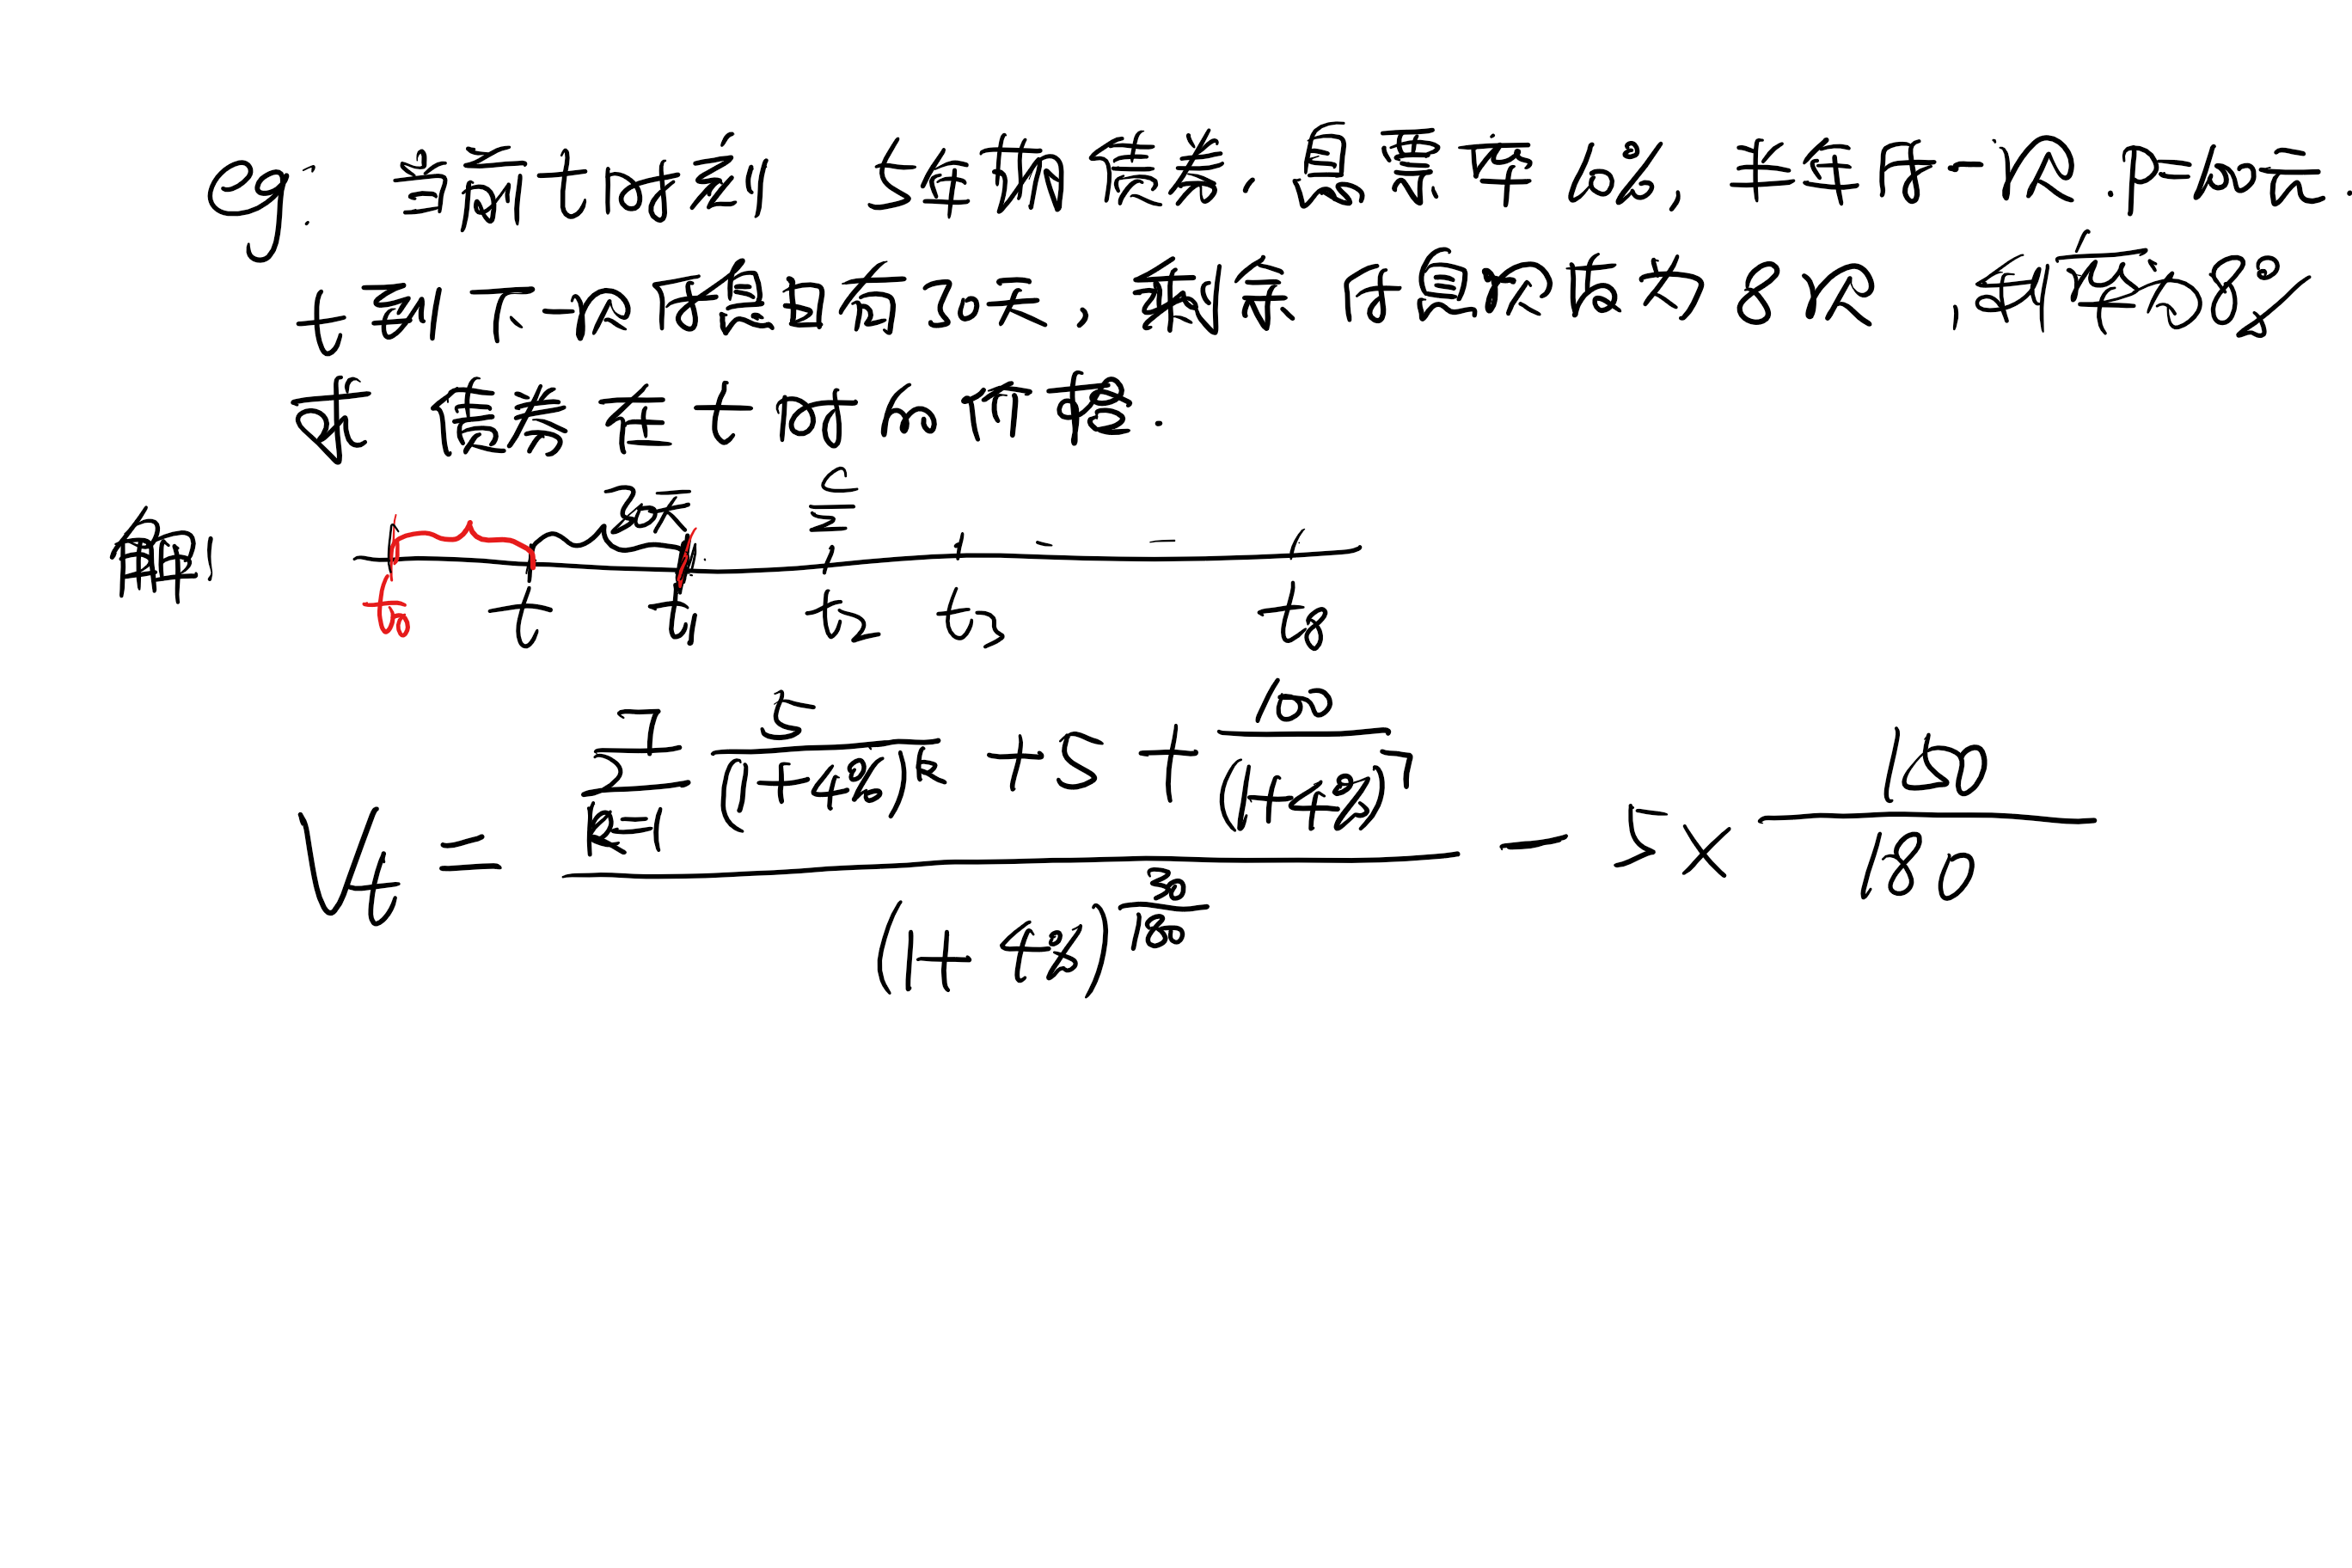 eg: 当前t时刻, 5年期债券. 息票率10%, 半年付一次. P=100元.
t到下一次付息日有30天, 剩余付息次数为8次, 利率为8%
求 债券在t时的价格.
解:
30天 c/2
t₀ t t₁ t₂ t₃ - - t₈
V_t = (∑_{k=1}^{7} 5/(1+4%)^k + 5 + 100/(1+4%)^7) / (1+4%)^{30/180} - 5 × 150/180